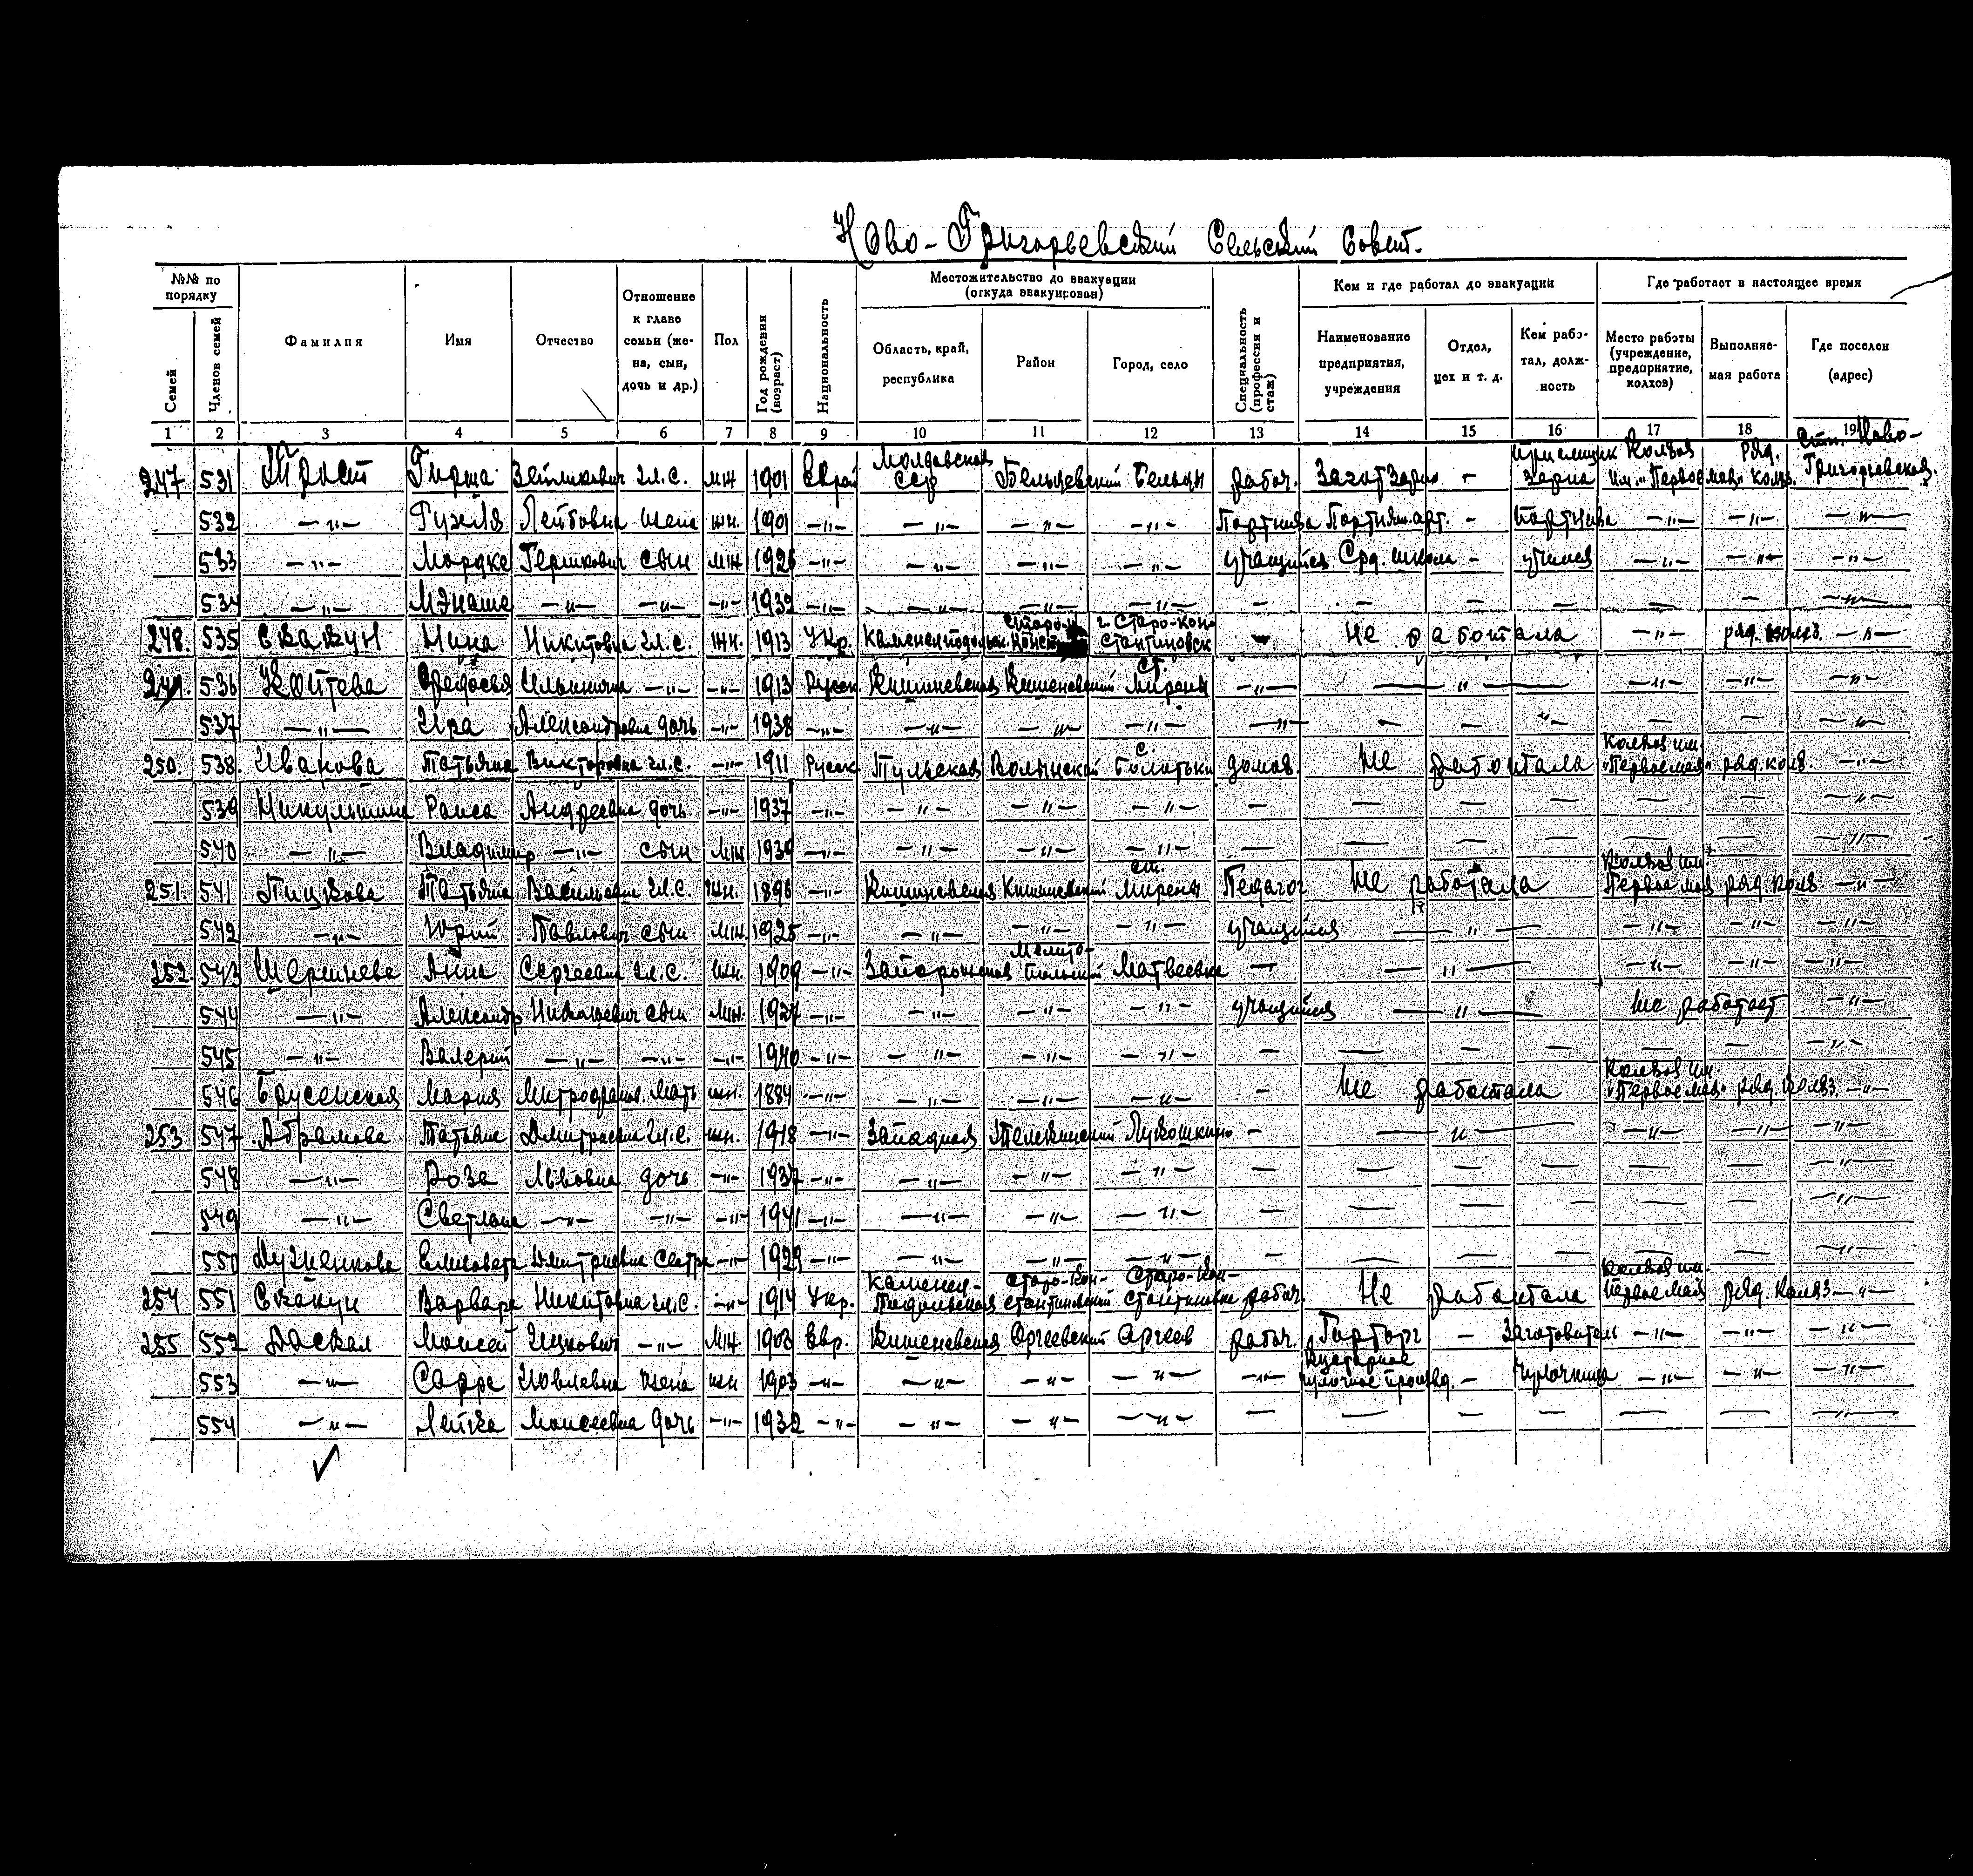 Ново-Григорьевский Сельский Совет.
№№ по порядку
Местожительство до эвакуации (откуда эвакуирован)
Кем и где работал до эвакуации
Где работает в настоящее время
Семей Членов семей Фамилия Имя Отчество Отношение к главе семьи (жена, сын, дочь и др.) Пол Год рождения (возраст) Национальность Область, край, республика Район Город, село Специальность (профессия и стаж) Наименование предприятия, учреждения Отдел, цех и т. д. Кем работал, должность Место работы (учреждение, предприятие, колхоз) Выполняемая работа Где поселен (адрес)
1 2 3 4 5 6 7 8 9 10 11 12 13 14 15 16 17 18 19
247 531 Гирша Зейликович Гл.С. мж 1901 Еврей Молдавская ССР Бельцевский Бельцы рабоч. Заготзерно - Приемщик Зерна Колхоз им. "Первое мая" ряд. колх. Стн. Ново-Григорьевская.
532 -"- Лейбовна жена жн. 1901 -"- -"- -"- -"- Портниха Портнян.арт. - Портниха -"- -"- -"-
533 -"- Мордке Гершкович сын мж 1926 -"- -"- -"- -"- учащийся Срд. школа - учился -"- -"- -"-
534 -"- Мэнаша -"- -"- -"- 1932 -"- -"- -"- -"- - - - - - - -"-
248. 535 Скакун Нина Никитовна Гл.С. жн. 1913 Укр. Каменецподольск. Старо-Конст г. Старо-Константиновск Не работала -"- ряд. колхз. -"-
249. 536 Койтева Федосья Ильинична -"- -"- 1913 Русск Кишиневская Кишеневский Ст. Мирены -"- -"- -"- -"- -"-
537 -"- Ира Александровна дочь -"- 1938 -"- -"- -"- -"- -"- - - -"- - - -"-
250. 538 Иванова Татьяна Викторовна гл.с. -"- 1911 Русск Тульская Волынский с. Болотьки домох. Не работала Колхоз им. "Первое мая" ряд. колх. -"-
539 Никульшина Раиса Андреевна дочь -"- 1937 -"- -"- -"- -"- - - - - - - -"-
540 -"- Владимир -"- сын мж 1939 -"- -"- -"- -"- - - - - - - -"-
251. 541 Пицкова Татьяна Васильевна Гл.С. жн. 1896 -"- Кишиневская Кишиневский ст. Мирены Педагог Не работала Колхоз им. Первое мая ряд. колх. -"-
542 -"- Юрий Павлович сын мж. 1925 -"- -"- -"- -"- учащийся -"- -"- -"- -"-
252. 543 Анна Сергеевна Гл.С. жн. 1909 -"- Запорожская Мелитопольский Матвеевка - -"- -"- -"- -"-
544 -"- Александр Николаевич сын мж. 1927 -"- -"- -"- -"- учащийся -"- Не работает -"-
545 -"- Валерий -"- -"- -"- 1940 -"- -"- -"- -"- - - - - - - -"-
546 Брусенская Мария Митрофанов. Мать жн. 1884 -"- -"- -"- -"- - Не работала Колхоз им "Первое мая" ряд. колхз. -"-
253 547 Абрамова Татьяна Дмитриевна Гл.С. жн. 1918 -"- Западная Лукошкино - -"- -"- -"- -"-
548 -"- Роза Львовна дочь -"- 1937 -"- -"- -"- -"- - - - - - - -"-
549 -"- Светлана -"- -"- -"- 1941 -"- -"- -"- -"- - - - - - - -"-
550 Лученкова Елизовета Дмитриевна Сестра -"- 1929 -"- -"- -"- -"- - - - - - - -"-
254 551 Скакун Варвара Никитовна гл.с. -"- 1914 Укр. Каменец-Подольская Старо-Константиновский Старо-Константиновка рабоч. Не работала Колхоз им. Первое мая ряд. колхз -"-
255 552 Даскал Моисей Ицкович -"- мж 1903 Евр. Кишеневская Оргеевский Оргеев рабоч. Горторг - Заготовитель -"- -"- -"-
553 -"- Сарра Иовлевна жена жн 1903 -"- -"- -"- -"- -"- Кустарное чулочное произвд. - Чулочница -"- -"- -"-
554 -"- Лейка Моисеевна дочь -"- 1932 -"- -"- -"- -"- - - - - - - -"-